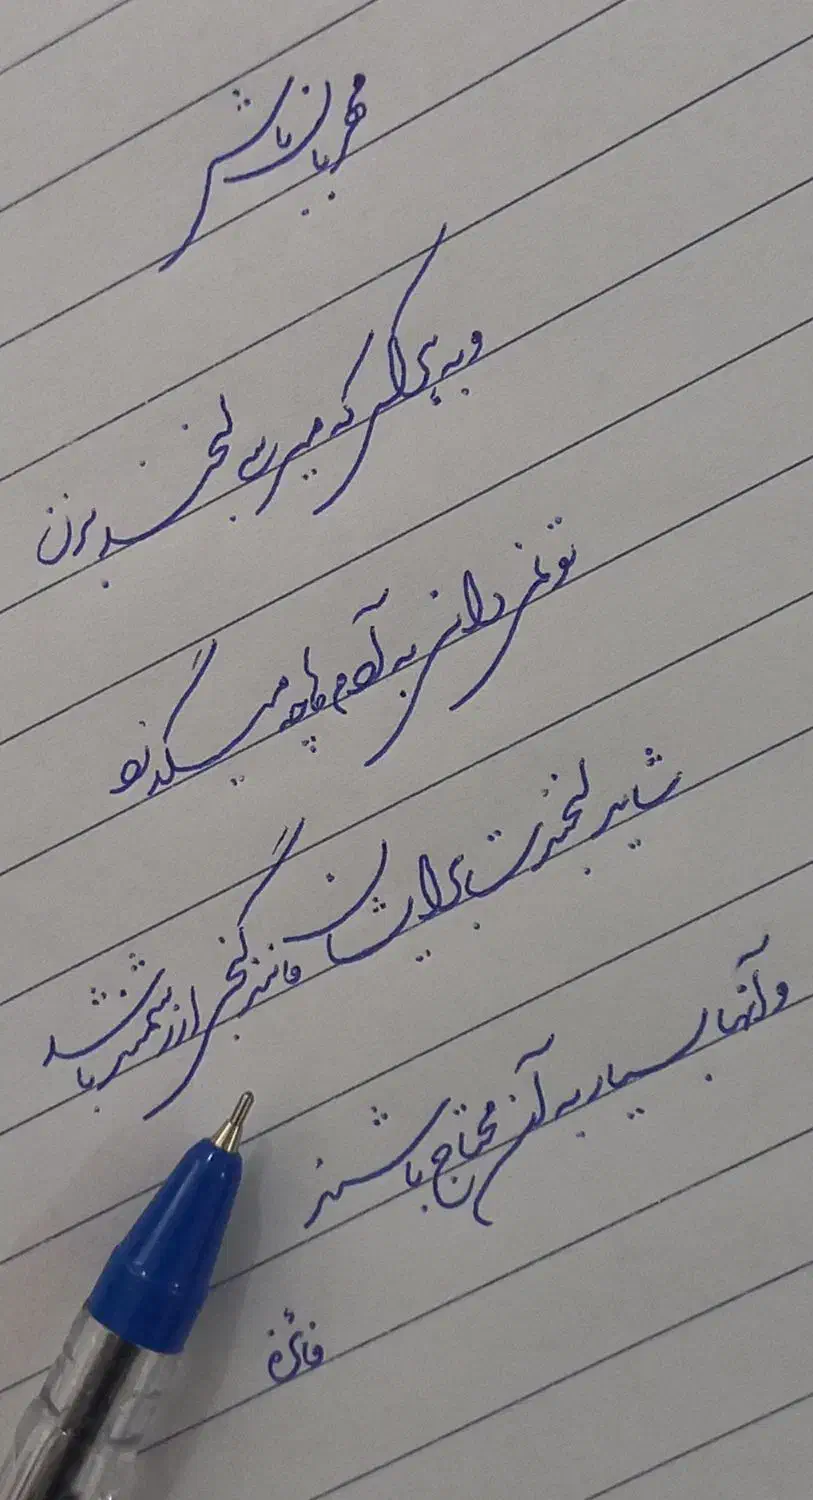 مهربان باش
و به هر کس که میرسی لبخند بزن
تو نمی دانی به آدم ها چه میگذرد
شاید لبخندت برایشان مانند گنجی ارزشمند باشد
و آنها بسیار به آن محتاج باشند
فائزه